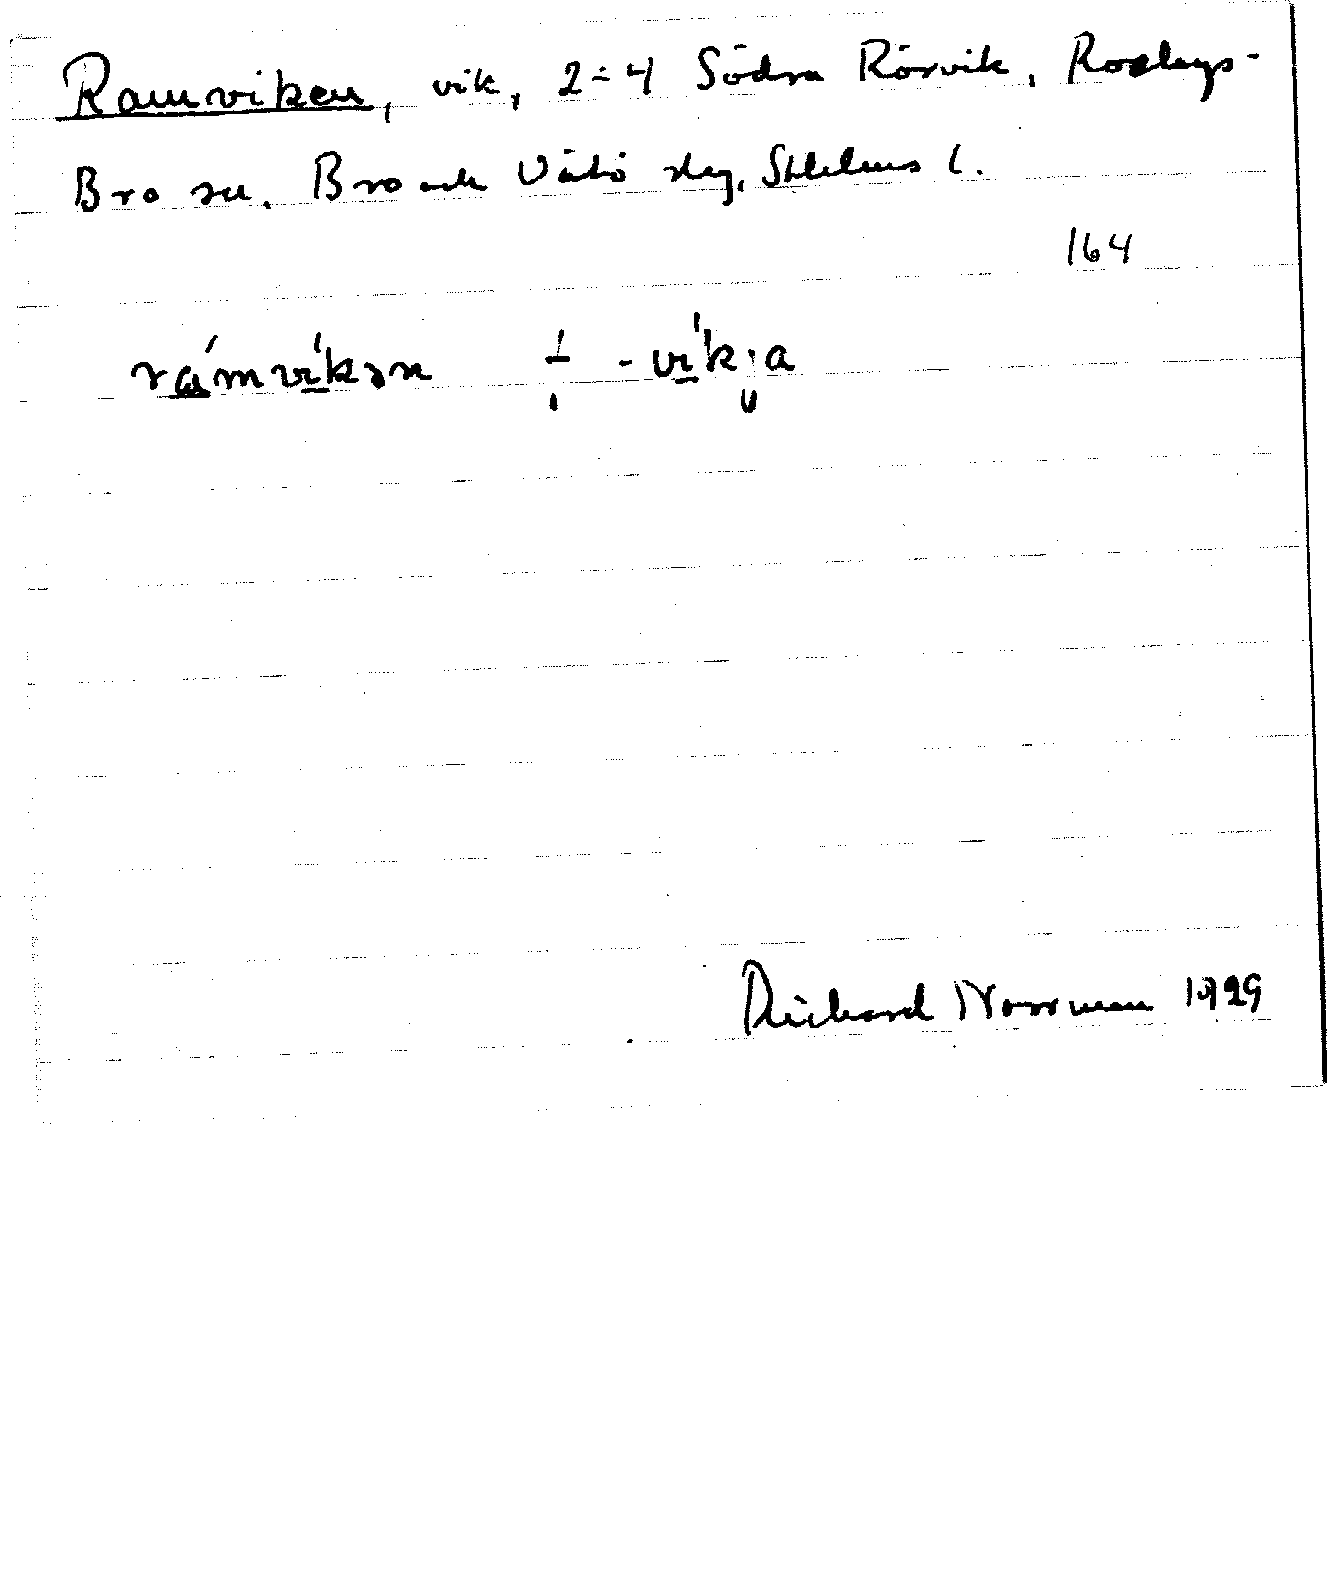 Ramviken, vik, 2=4 Södra Rörvik, Roslags-
Bro sn. Bro och Vätö skg, Sthlms l.
164
rámvíkən ∸ -vík a
Richard Norrman 1929